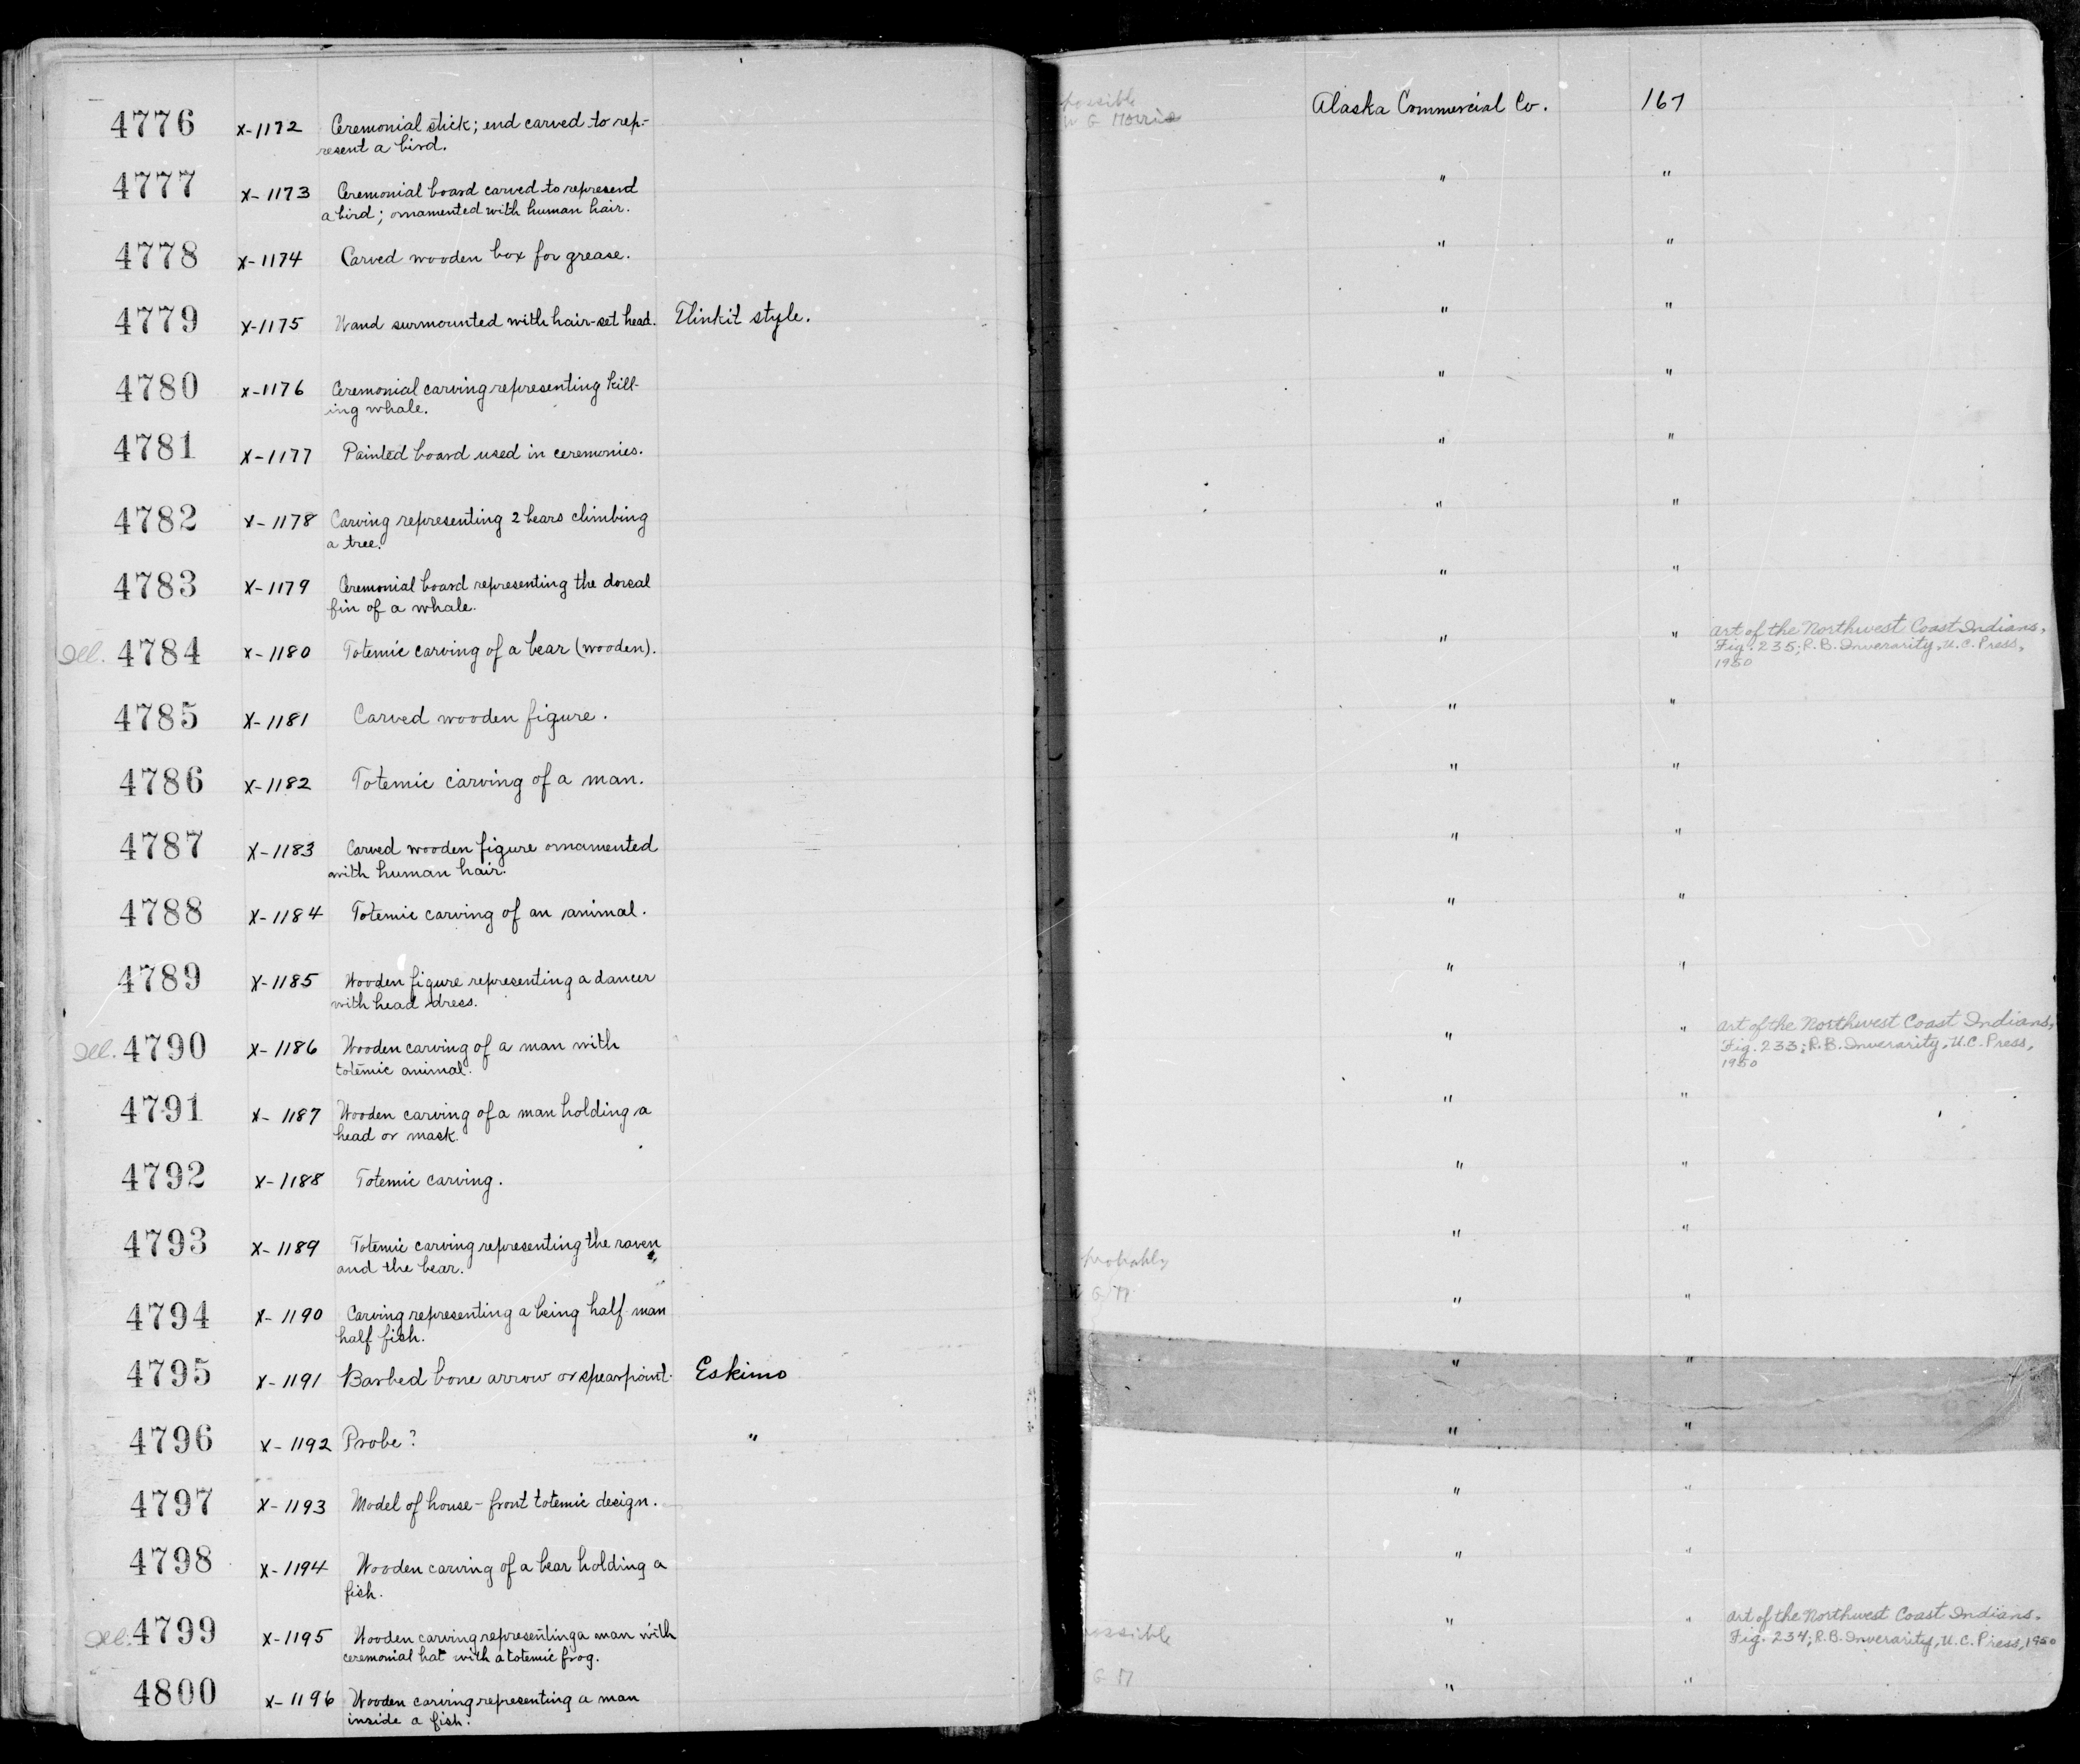 4776 X-1172 Ceremonial stick; end carved to rep- possible Alaska Commercial Co. 167
resent a bird. W G Morris
4777 X-1173 Ceremonial board carved to represend " "
a bird; ornamented with human hair.
4778 X-1174 Carved wooden box for grease. " "
4779 X-1175 Wand surmounted with hair-set head. Tlinkit style. " "
4780 X-1176 Ceremonial carving representing kill- " "
ing whale.
4781 X-1177 Painted board used in ceremonies. " "
4782 X-1178 Carving representing 2 bears climbing " "
a tree.
4783 X-1179 Ceremonial board representing the dorsal " "
fin of a whale.
Ill. 4784 X-1180 Totemic carving of a bear (wooden). " " Art of the Northwest Coast Indians,
Fig. 235; R.B. Inverarity, U.C. Press,
1950
4785 X-1181 Carved wooden figure. " "
4786 X-1182 Totemic carving of a man. " "
4787 X-1183 Carved wooden figure ornamented " "
with human hair.
4788 X-1184 Totemic carving of an animal. " "
4789 X-1185 Wooden figure representing a dancer " "
with head dress.
Ill. 4790 X-1186 Wooden carving of a man with " " Art of the Northwest Coast Indians,
totemic animal. Fig. 233; R.B. Inverarity, U.C. Press,
1950
4791 X-1187 Wooden carving of a man holding a " "
head or mask.
4792 X-1188 Totemic carving. " "
4793 X-1189 Totemic carving representing the raven " "
and the bear. probably
4794 X-1190 Carving representing a being half man W G M " "
half fish.
4795 X-1191 Barbed bone arrow or spearpoint. Eskimo " "
4796 X-1192 Probe? " " "
4797 X-1193 Model of house-front totemic design. " "
4798 X-1194 Wooden carving of a bear holding a " "
fish.
Ill. 4799 X-1195 Wooden carving representing a man with possible " " Art of the Northwest Coast Indians.
ceremonial hat with a totemic frog. Fig. 234; R.B. Inverarity, U.C. Press, 1950
4800 X-1196 Wooden carving representing a man G M " "
inside a fish.